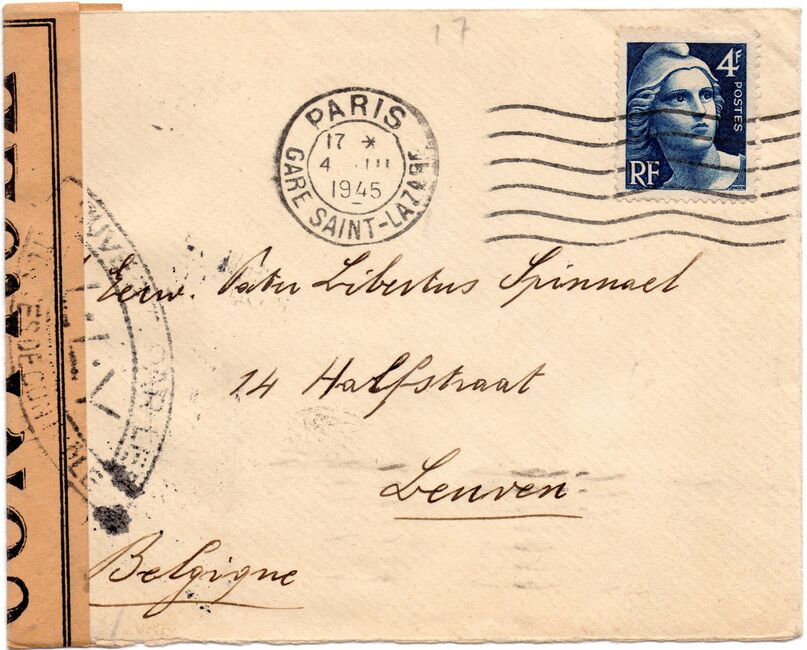 17
PARIS
17 *
4 III
1945
GARE SAINT-LAZARE
4F
POSTES
RF
Eerw. Pater Libertus Spinnael
14 Halfstraat
Leuven
Belgigne
OUV
PAR LE